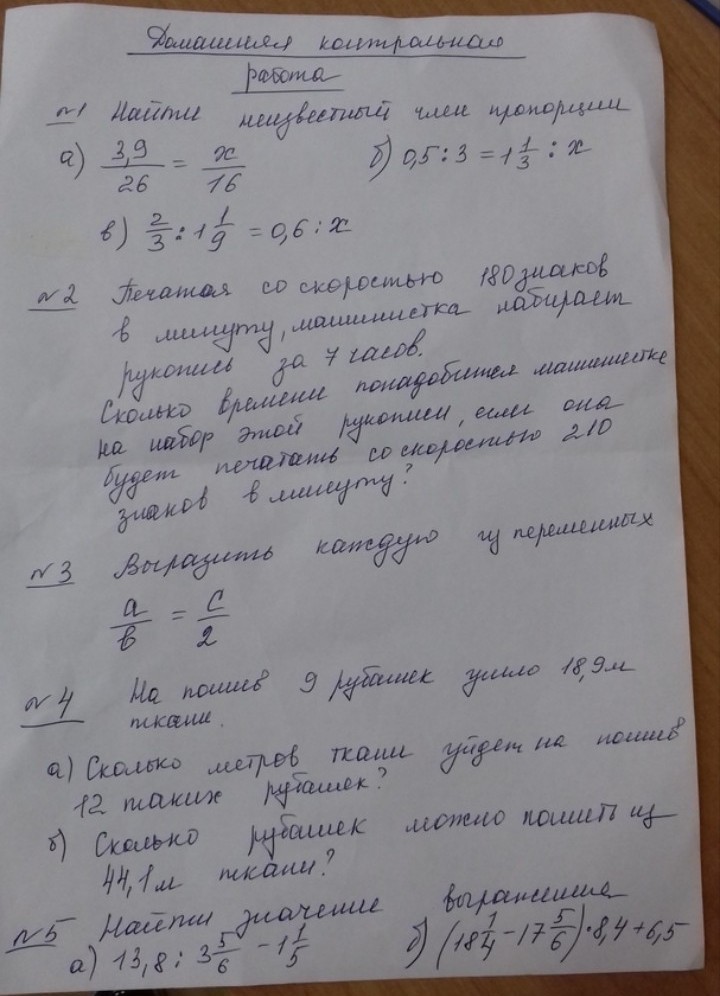 Домашняя контрольная
работа
№1 Найти неизвестный член пропорции
а) 3,9/26 = x/16 б) 0,5 : 3 = 1 1/3 : x
в) 2/3 : 1 1/9 = 0,6 : x
№2 Печатая со скоростью 180 знаков
в минуту, машинистка набирает
рукопись за 7 часов.
Сколько времени понадобится машинистке
на набор этой рукописи, если она
будет печатать со скоростью 210
знаков в минуту?
№3 Выразить каждую из переменных
a/b = c/2
№4 На пошив 9 рубашек ушло 18,9м
ткани.
а) Сколько метров ткани уйдет на пошив
12 таких рубашек?
б) Сколько рубашек можно пошить из
44,1м ткани?
№5 Найти значение выражения
а) 13,8 : 3 5/6 - 1 1/5 б) (18 1/4 - 17 5/6) · 8,4 + 6,5